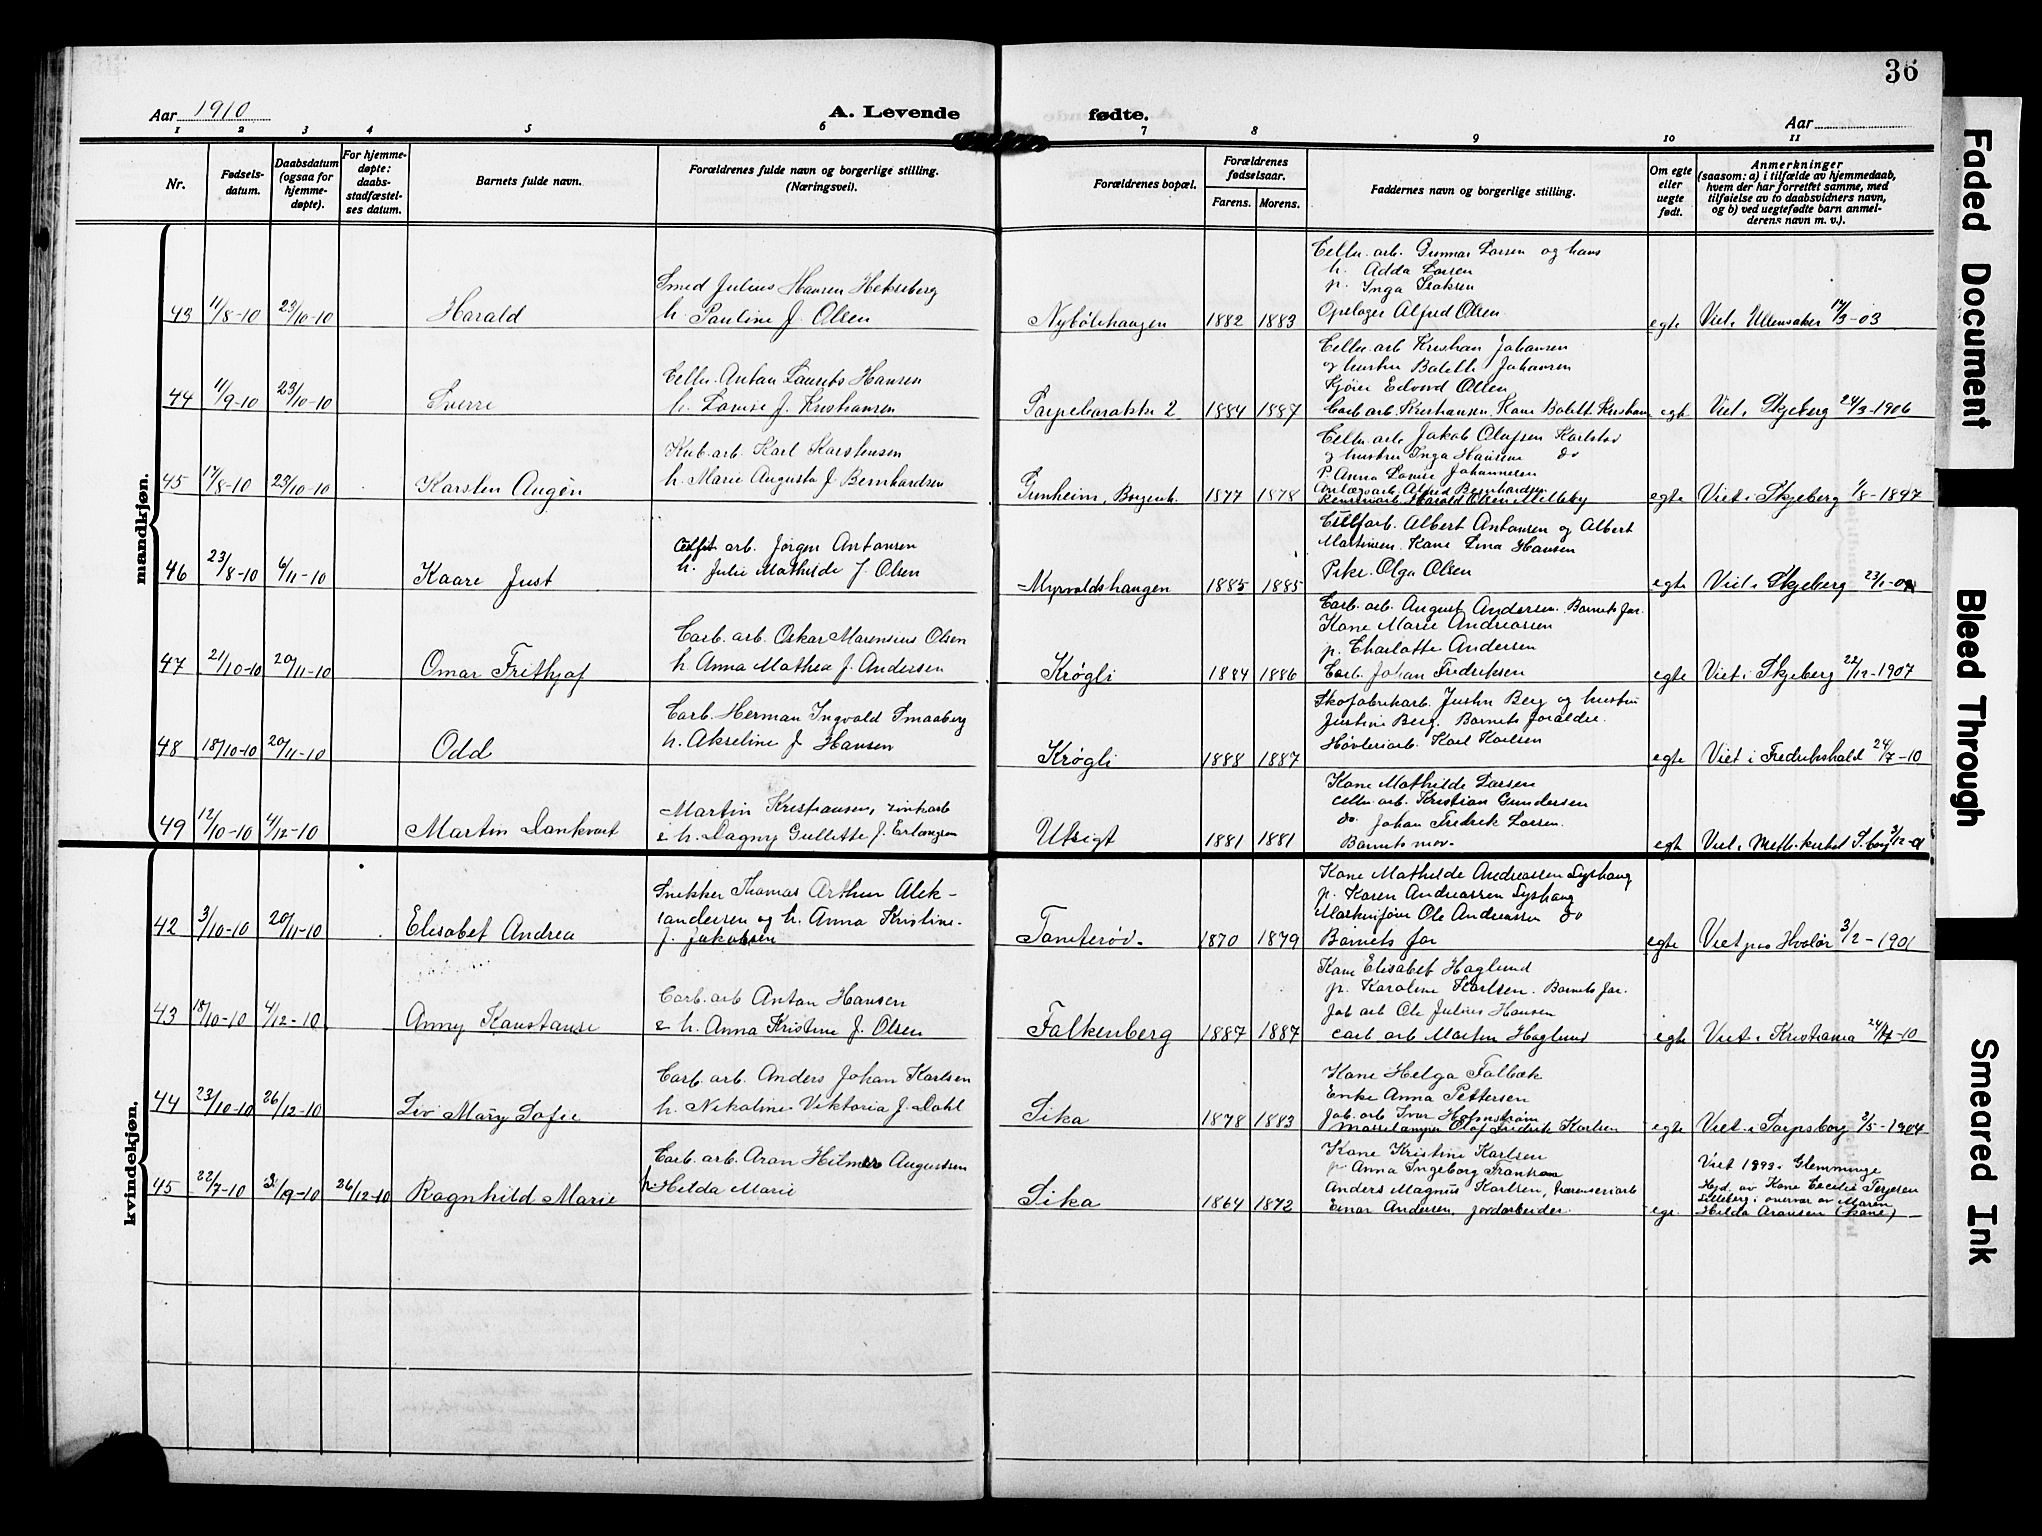 36
Aar 1910
A. Levende
fødte.
Aar
1 2 3 4 5 6 7 8 9 10 11
Nr.
Fødsels-
datum.
Daabsdatum
(ogsaa for
hjemme-
døpte).
For hjemme-
døpte:
daabs-
stadfæstel-
ses datum.
Barnets fulde navn.
Forældrenes fulde navn og borgerlige stilling.
(Næringsvei).
Forældrenes bopæl.
Forældrenes
fødselsaar.
Farens. Morens.
Faddernes navn og borgerlige stilling.
Om egte
eller
uegte
født.
Anmerkninger
(saasom: a) i tilfælde av hjemmedaab,
hvem der har forrettet samme, med
tilføielse av to daabsvidners navn,
og b) ved uegtefødte barn anmel-
derens navn m. v.).
mandkjøn.
43 11/8-10 23/10-10 Harald
Smed Julius Hansen Hekseberg
h. Pauline f. Olsen
Nybølehaugen 1882 1883
Cellu. arb. Gunnar Larsen og hans
h. Adda Larsen
p. Inga Isaksen
Opslager Alfred Olsen
egte Viet i Ullensaker 17/3-03
44 11/9-10 23/10-10 Sverre
Cellu. Anton Laurits Hansen
h. Lovise f. Kristiansen
2 1884 1887
Cellu. arb Kristian Johansen
og hustru Bolette Johansen
Kjøier Edvard Olsen
Carb. arb. Kristiansen. Kone Bolett Kristians
egte Viet i Skjeberg 24/3-1906
45 17/8-10 23/10-10 Karsten Augen
Kub. arb. Karl Karstensen
h. Marie Augusta f. Bernhardsen
Grenheim, Borgenh. 1877 1878
Cellu. arb Jakob Olufsen Karlstad
og hustru Inga Hansen do
P. Anna Lovise Johannesen
Anlægsarb. Alfred Bernhardsen
Harald Olsen Melleby
egte Viet i Skjeberg 1/8-1897
46 23/8-10 6/11-10 Kaare Just
arb. Jørgen Antonsen
h. Julie Mathilde f. Olsen
Myrvoldshaugen 1885 1885
Cellfarb. Albert Antonsen og Albert
Martinsen. Kone Lina Hansen
Pike. Olga Olsen
egte Viet i Skjeberg
47 21/10-10 20/11-10 Omar Frithjof
Carb. arb. Oskar Marensius Olsen
h. Anna Mathea f. Andersen
Krøgli 1884 1886
Carb. arb. August Andersen. Barnets far.
Kone Marie Andreasen
p. Charlotte Andersen
Carb. Johan Fredriksen
egte Viet i Skjeberg 22/12-1907
48 18/10-10 20/11-10 Odd
Carb. Herman Ingvald Smaaberg
h. Akseline f Hansen
Krøgli 1888 1887
Skofabrikarb. Justin Berg og hustru
Justine Berg. Barnets foraldre.
Høvleriarb. Karl Karlsen
egte Viet i Fredrikshald 24/7-10
49 12/10-10 4/12-10 Martin Dankvart
Martin Kristiansen, zinkarb
& h. Dagny Gullette f. Erlangsen
Utsigt 1881 1881
Kone Mathilde Larsen
cellu. arb. Kristian Gundersen
do. Johan Fredrik Larsen.
Barnets mor.
egte Viet i Meth. kirken S.borg
kvindekjøn.
42 3/10-10 20/11-10 Elisabet Andrea
Snekker Thomas Arthur Alek-
sandersen og h. Anna Kristine
f. Jakobsen
Tomterød. 1870 1879
Kone Mathilde Andreassen Lyshaug
p. Karen Andreassen Lyshaug
Ole Andreassen do
Barnets far
egte Viet paa Hvaler 3/2-1901
43 18/10-10 4/12-10 Anny Konstanse
Carb. arb Anton Hansen
& h. Anna Kristine f. Olsen
Falkenberg 1887 1887
Kone Elisabet Haglund
p. Karoline Karlsen. Barnets far.
fab arb Ole Julius Hansen
carb arb Martin Haglund
egte Viet i Kristiania 24/7-10
44 23/10-10 26/12-10 Liv Mary Sofie
Carb. arb. Anders Johan Karlsen
h. Nikoline Viktoria f. Dahl
Sika 1878 1883
Kone Helga Falbæk
Enke Anna Pettersen
fab. arb Ivar Holmstrøm
Olaf Fredrik Karlsen
egte Viet i Sarpsborg 3/5-1904
45 22/7-10 3/9-10 26/12-10 Ragnhild Marie
Carb. arb. Aron Hilmer Augustsen
h. Hilda Marie
Sika 1864 1872
Kone Kristine Karlsen
p. Anna Ingeborg
Anders Magnus Karlsen,
Einar Andersen, jordarbeider.
egte.
Viet 1893 i Glemminge
Hjd. av Kone Cecilie Terjesen
Lilleberg i overvær av Maren
Hilda Aronsen (kone)
Faded Document
Bleed Through
Smeared Ink